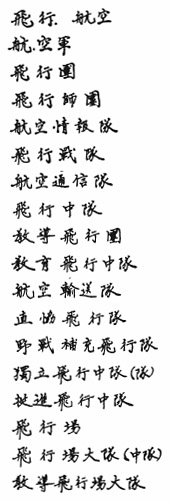 飛行、航空
航空軍
飛行團
飛行師團
航空情報隊
飛行戰隊
航空通信隊
飛行中隊
教導飛行團
教育飛行中隊
航空輸送隊
直協飛行隊
野戰補充飛行隊
獨立飛行中隊(隊)
挺進飛行中隊
飛行場
飛行場大隊(中隊)
教導飛行場大隊